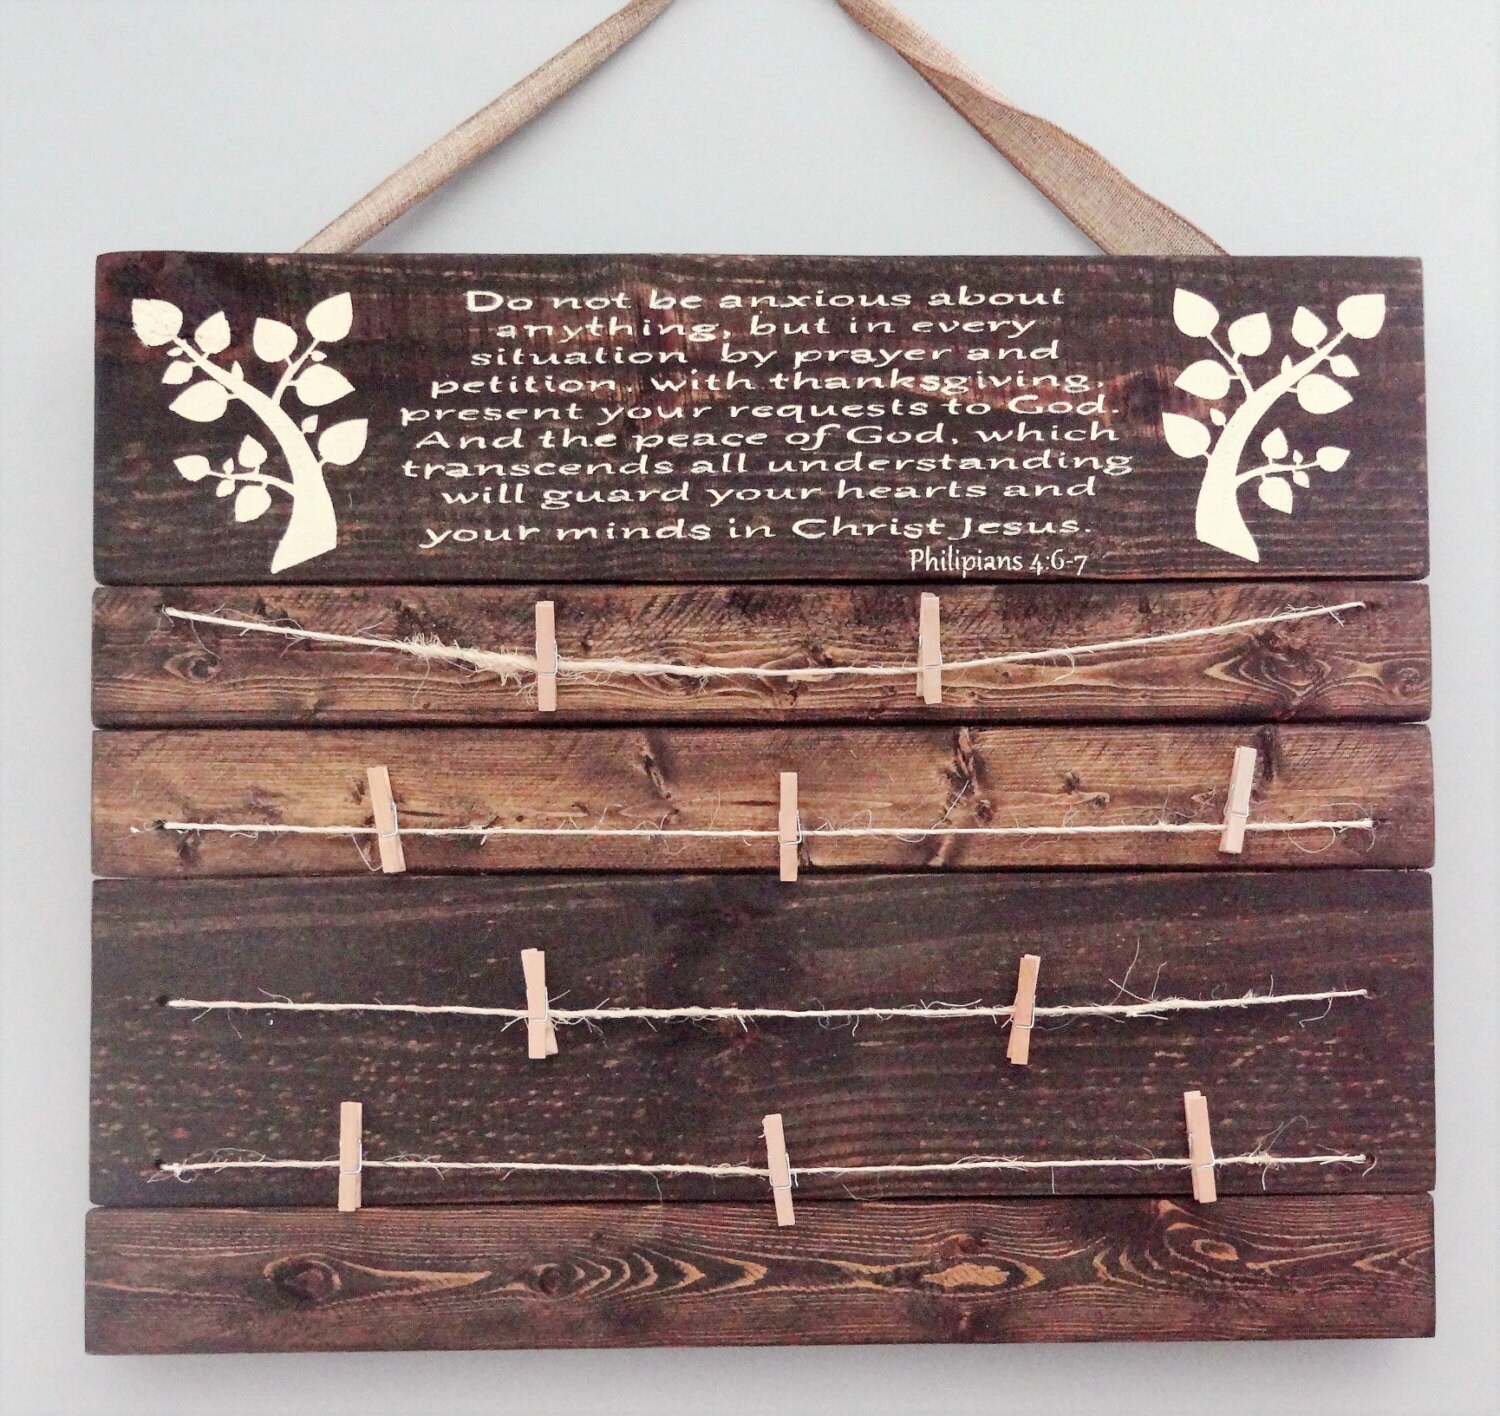 Do not be anxious about
anything, but in every
situation by prayer and
petition, with thanksgiving,
present your requests to God.
And the peace of God, which
transcends all understanding
will guard your hearts and
your minds in Christ Jesus.
Philipians 4:6-7